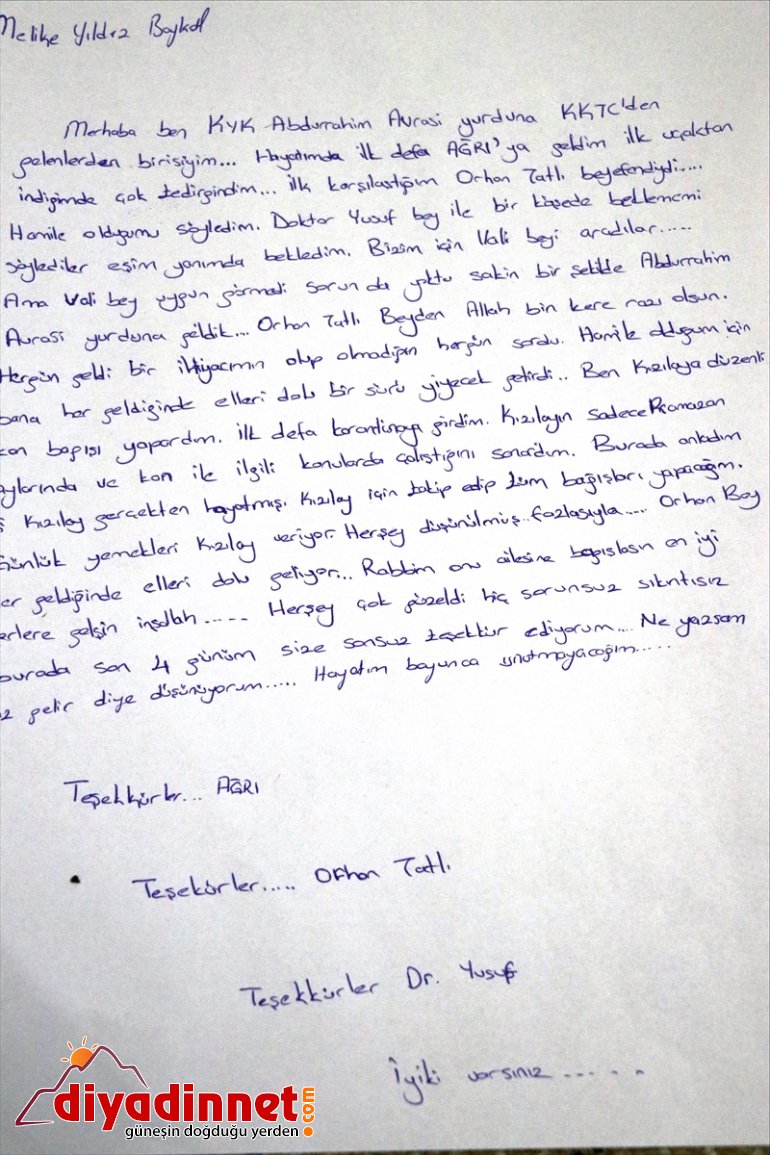 Melike Yıldız Baykal
Merhaba ben KYK Abdurrahim Avrasi yurduna KKTC'den
gelenlerden birisiyim... Hayatımda ilk defa AĞRI'ya geldim ilk uçaktan
indiğimde çok tedirgindim... ilk karşılaştığım Orhan Tatlı beyefendiydi....
Hamile olduğumu söyledim. Doktor Yusuf bey ile bir köşede beklememi
söylediler eşim yanımda bekledim. Bizim için Vali beyi aradılar.....
Ama Vali bey uygun görmedi sorun da yoktu sakin bir şekilde Abdurrahim
Avrasi yurduna geldik... Orhan Tatlı Beyden Allah bin kere razı olsun.
Hergün geldi bir ihtiyacımın olup olmadığını hergün sordu. Hamile olduğum için
bana her geldiğinde elleri dolu bir sürü yiyecek getirdi.. Ben Kızılaya düzenli
kan bağışı yapardım. ilk defa karantinaya girdim. Kızılayın sadece Ramazan
aylarında ve kan ile ilgili konularda çalıştığını sanardım. Burada anladım
Kızılay gerçekten hayatmış. Kızılay için takip edip tüm bağışları yapacağım.
Günlük yemekleri Kızılay veriyor. Herşey düşünülmüş.. fazlasıyla.... Orhan Bey
er geldiğinde elleri dolu geliyor... Rabbim onu ailesine bağışlasın en iyi
erlere gelsin inşallah..... Herşey çok güzeldi hiç sorunsuz sıkıntısız
burada son 4 günüm size sonsuz teşekkür ediyorum.... Ne yazsam
az gelir diye düşünüyorum..... Hayatım boyunca unutmayacağım.....
Teşekkürler... AĞRI
Teşekürler..... Orhan Tatlı
Teşekkürler Dr. Yusuf
İyiki varsınız......
diyadinnet.com
güneşin doğduğu yerden.